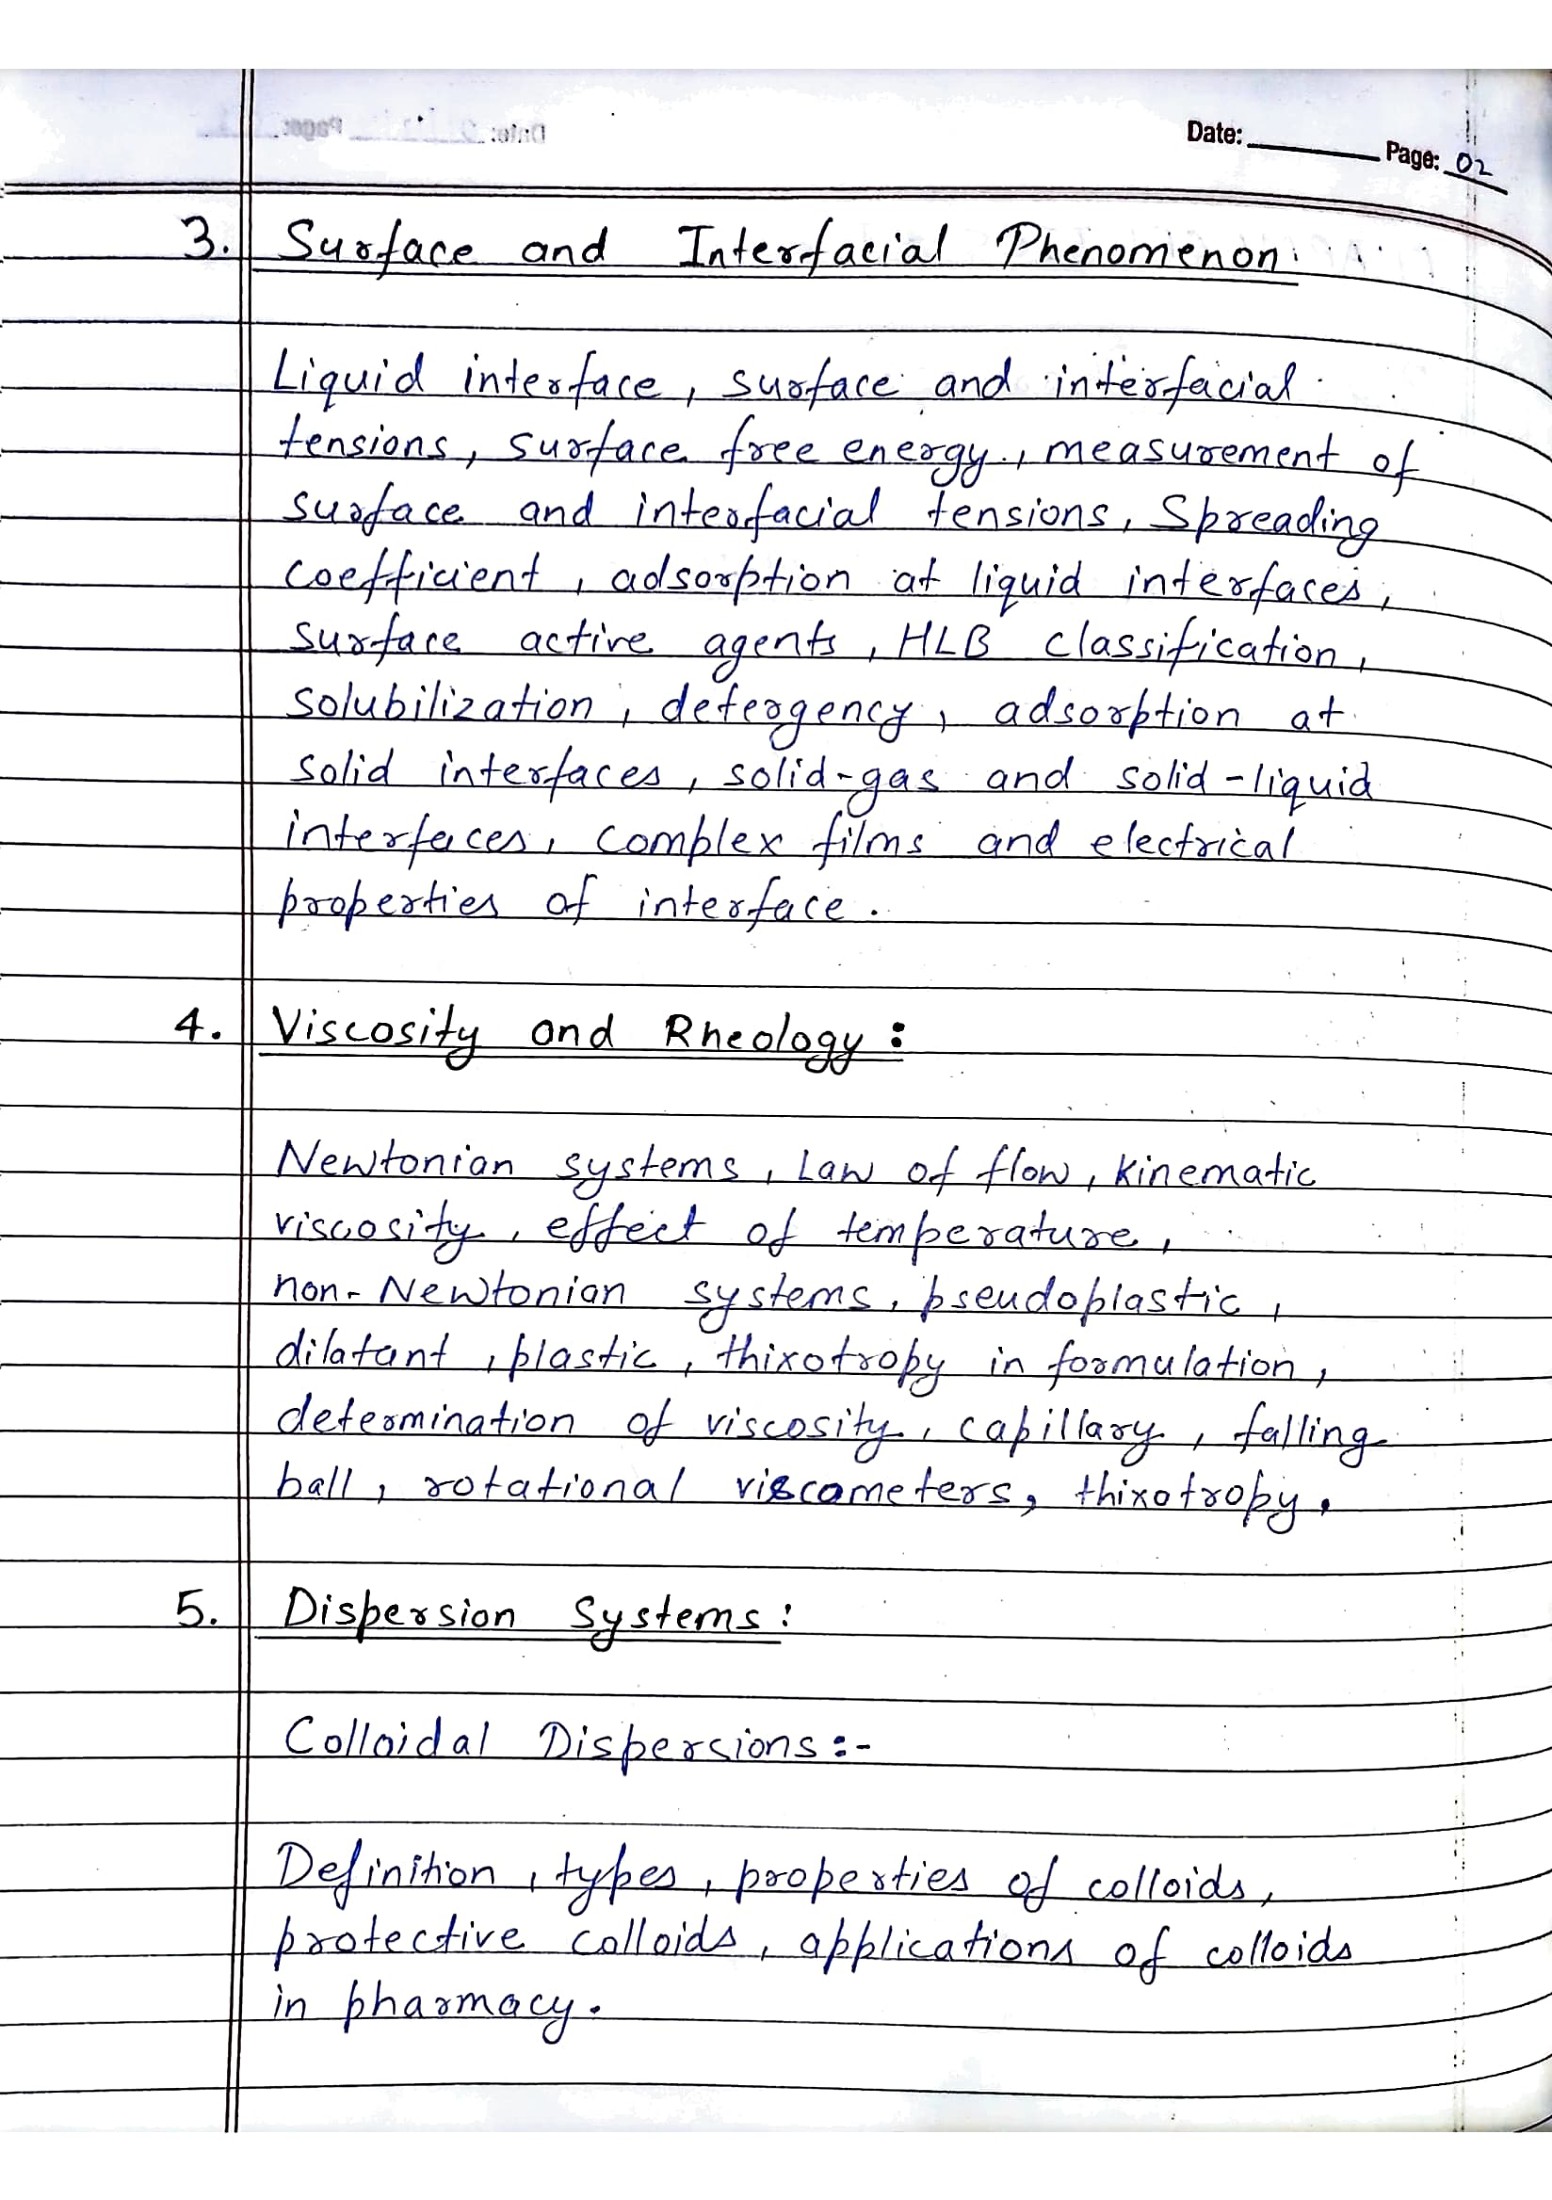 Date: Page: 02
3. Surface and Interfacial Phenomenon:
Liquid interface, surface and interfacial
tensions, surface free energy, measurement of
surface and interfacial tensions, Spreading
coefficient, adsorption at liquid interfaces,
surface active agents, HLB classification,
solubilization, detergency, adsorption at
solid interfaces, solid-gas and solid-liquid
interfaces, complex films and electrical
properties of interface.
4. Viscosity and Rheology:
Newtonian systems, Law of flow, kinematic
viscosity, effect of temperature,
non-Newtonian systems, pseudoplastic,
dilatant, plastic, thixotropy in formulation,
determination of viscosity, capillary, falling
ball, rotational viscometers, thixotropy.
5. Dispersion Systems:
Colloidal Dispersions:-
Definition, types, properties of colloids,
protective colloids, applications of colloids
in pharmacy.